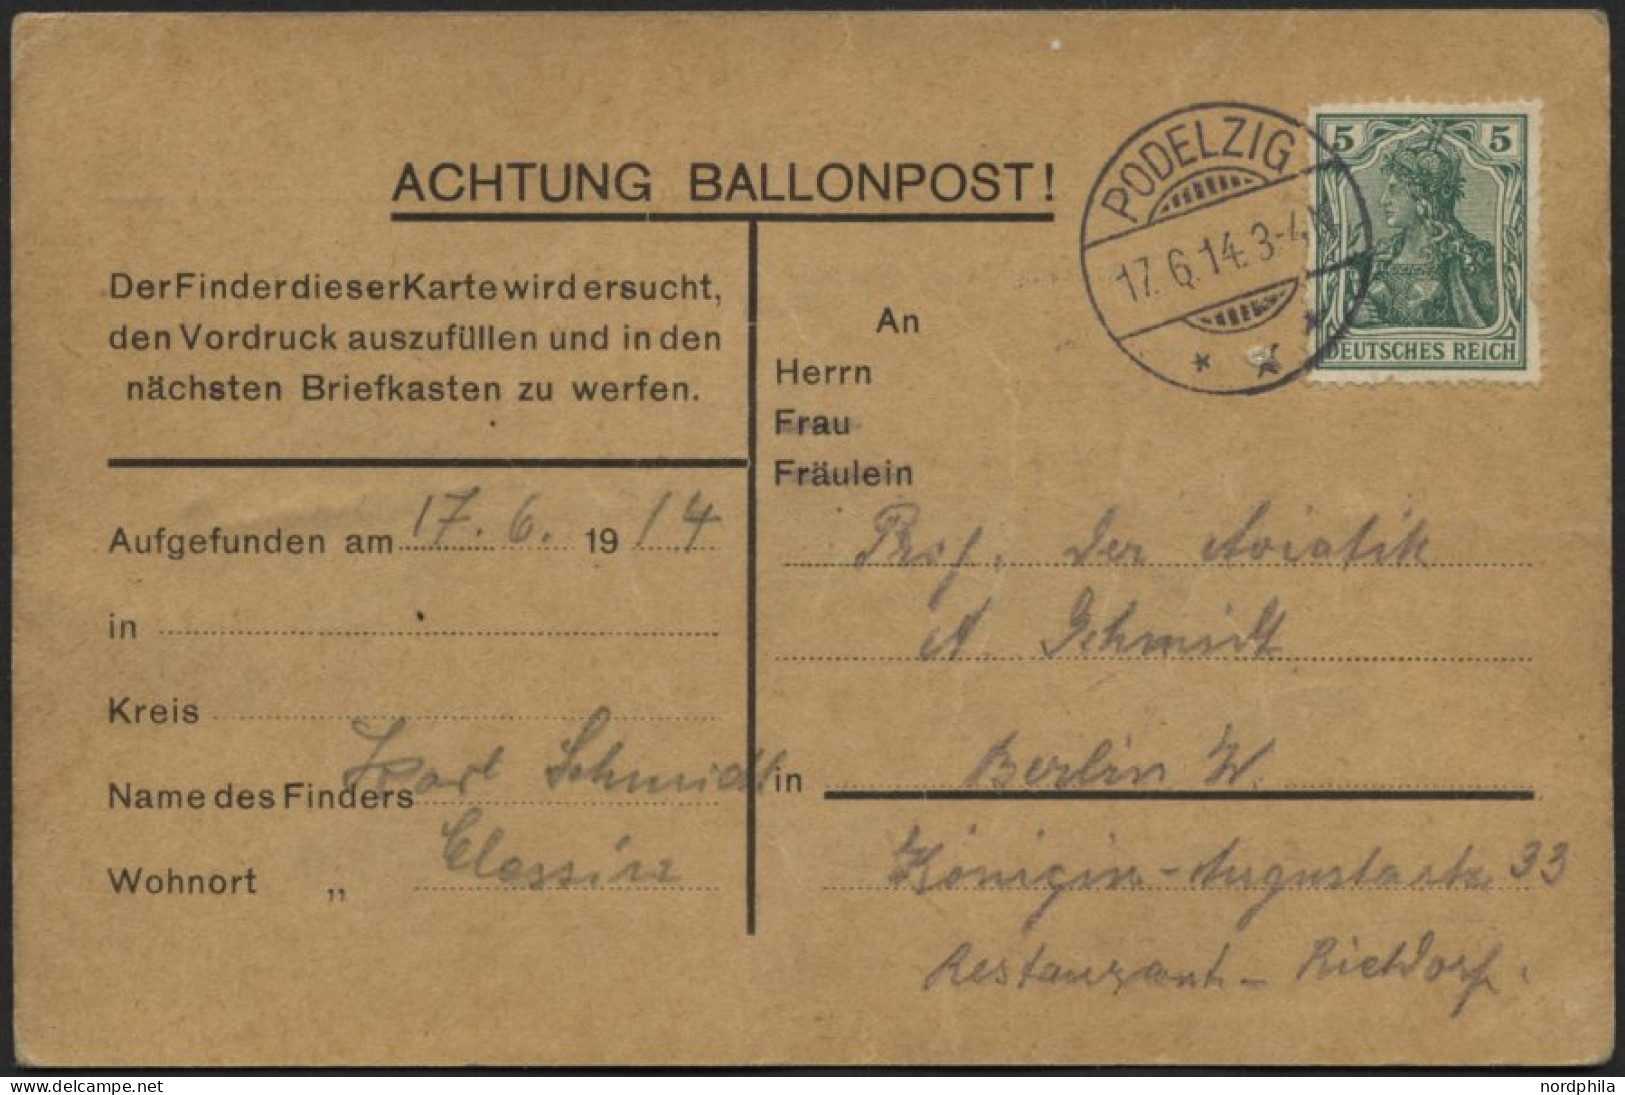 ACHTUNG BALLONPOST!
Der Finder dieser Karte wird ersucht,
den Vordruck auszufüllen und in den
nächsten Briefkasten zu werfen.
Aufgefunden am 17. 6. 19 14
in
Kreis
Name des Finders Karl Schmidt
Wohnort „ Clessin
PODELZIG
17. 6. 14. 3-4 N
5 5
DEUTSCHES REICH
An
Herrn
Frau
Fräulein
Prof. der Aviatik
A. Schmidt
in Berlin W.
Königin-Augustastr. 33
Restaurant - Rietdorf.
www.delcampe.net
nordphila